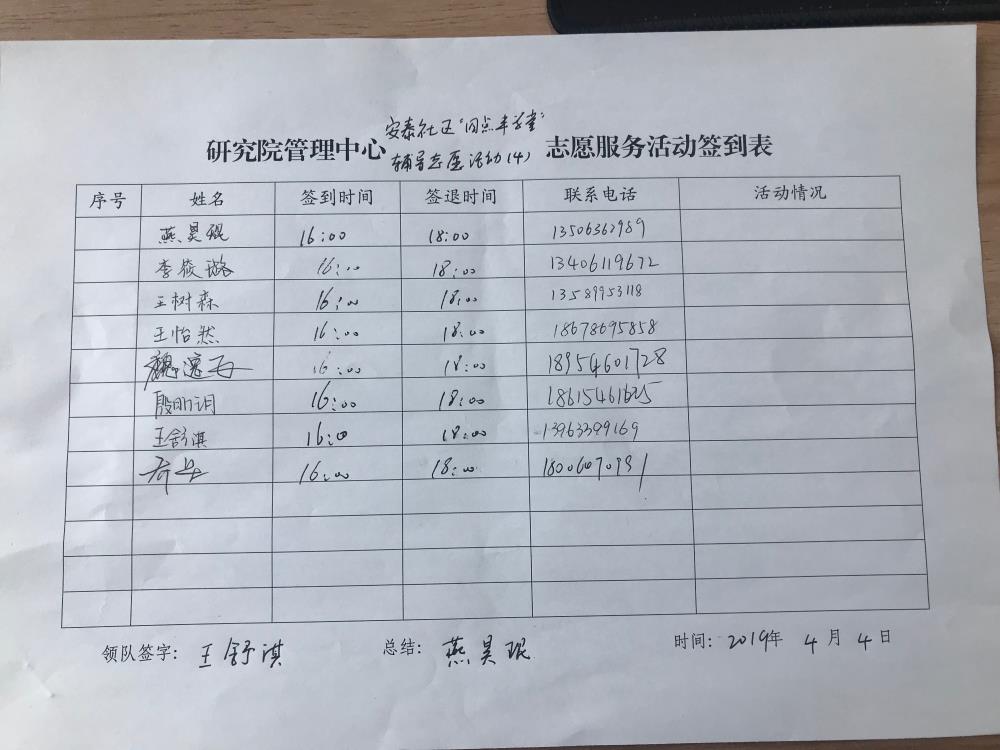 安泰社区"四点半学堂"
研究院管理中心 辅导志愿活动(4) 志愿服务活动签到表
序号 姓名 签到时间 签退时间 联系电话 活动情况
燕昊琨 16:00 18:00 13506362989
李筱璐 16:00 18:00 13406119672
王树森 16:00 18:00 13589953118
王怡然 16:00 18:00 18678695858
魏 16:00 18:00 18954601728
殷明玥 16:00 18:00 18615461625
王舒淇 16:00 18:00 13963399169
16:00 18:00
领队签字: 王舒淇 总结: 燕昊琨 时间: 2019年 4 月 4 日